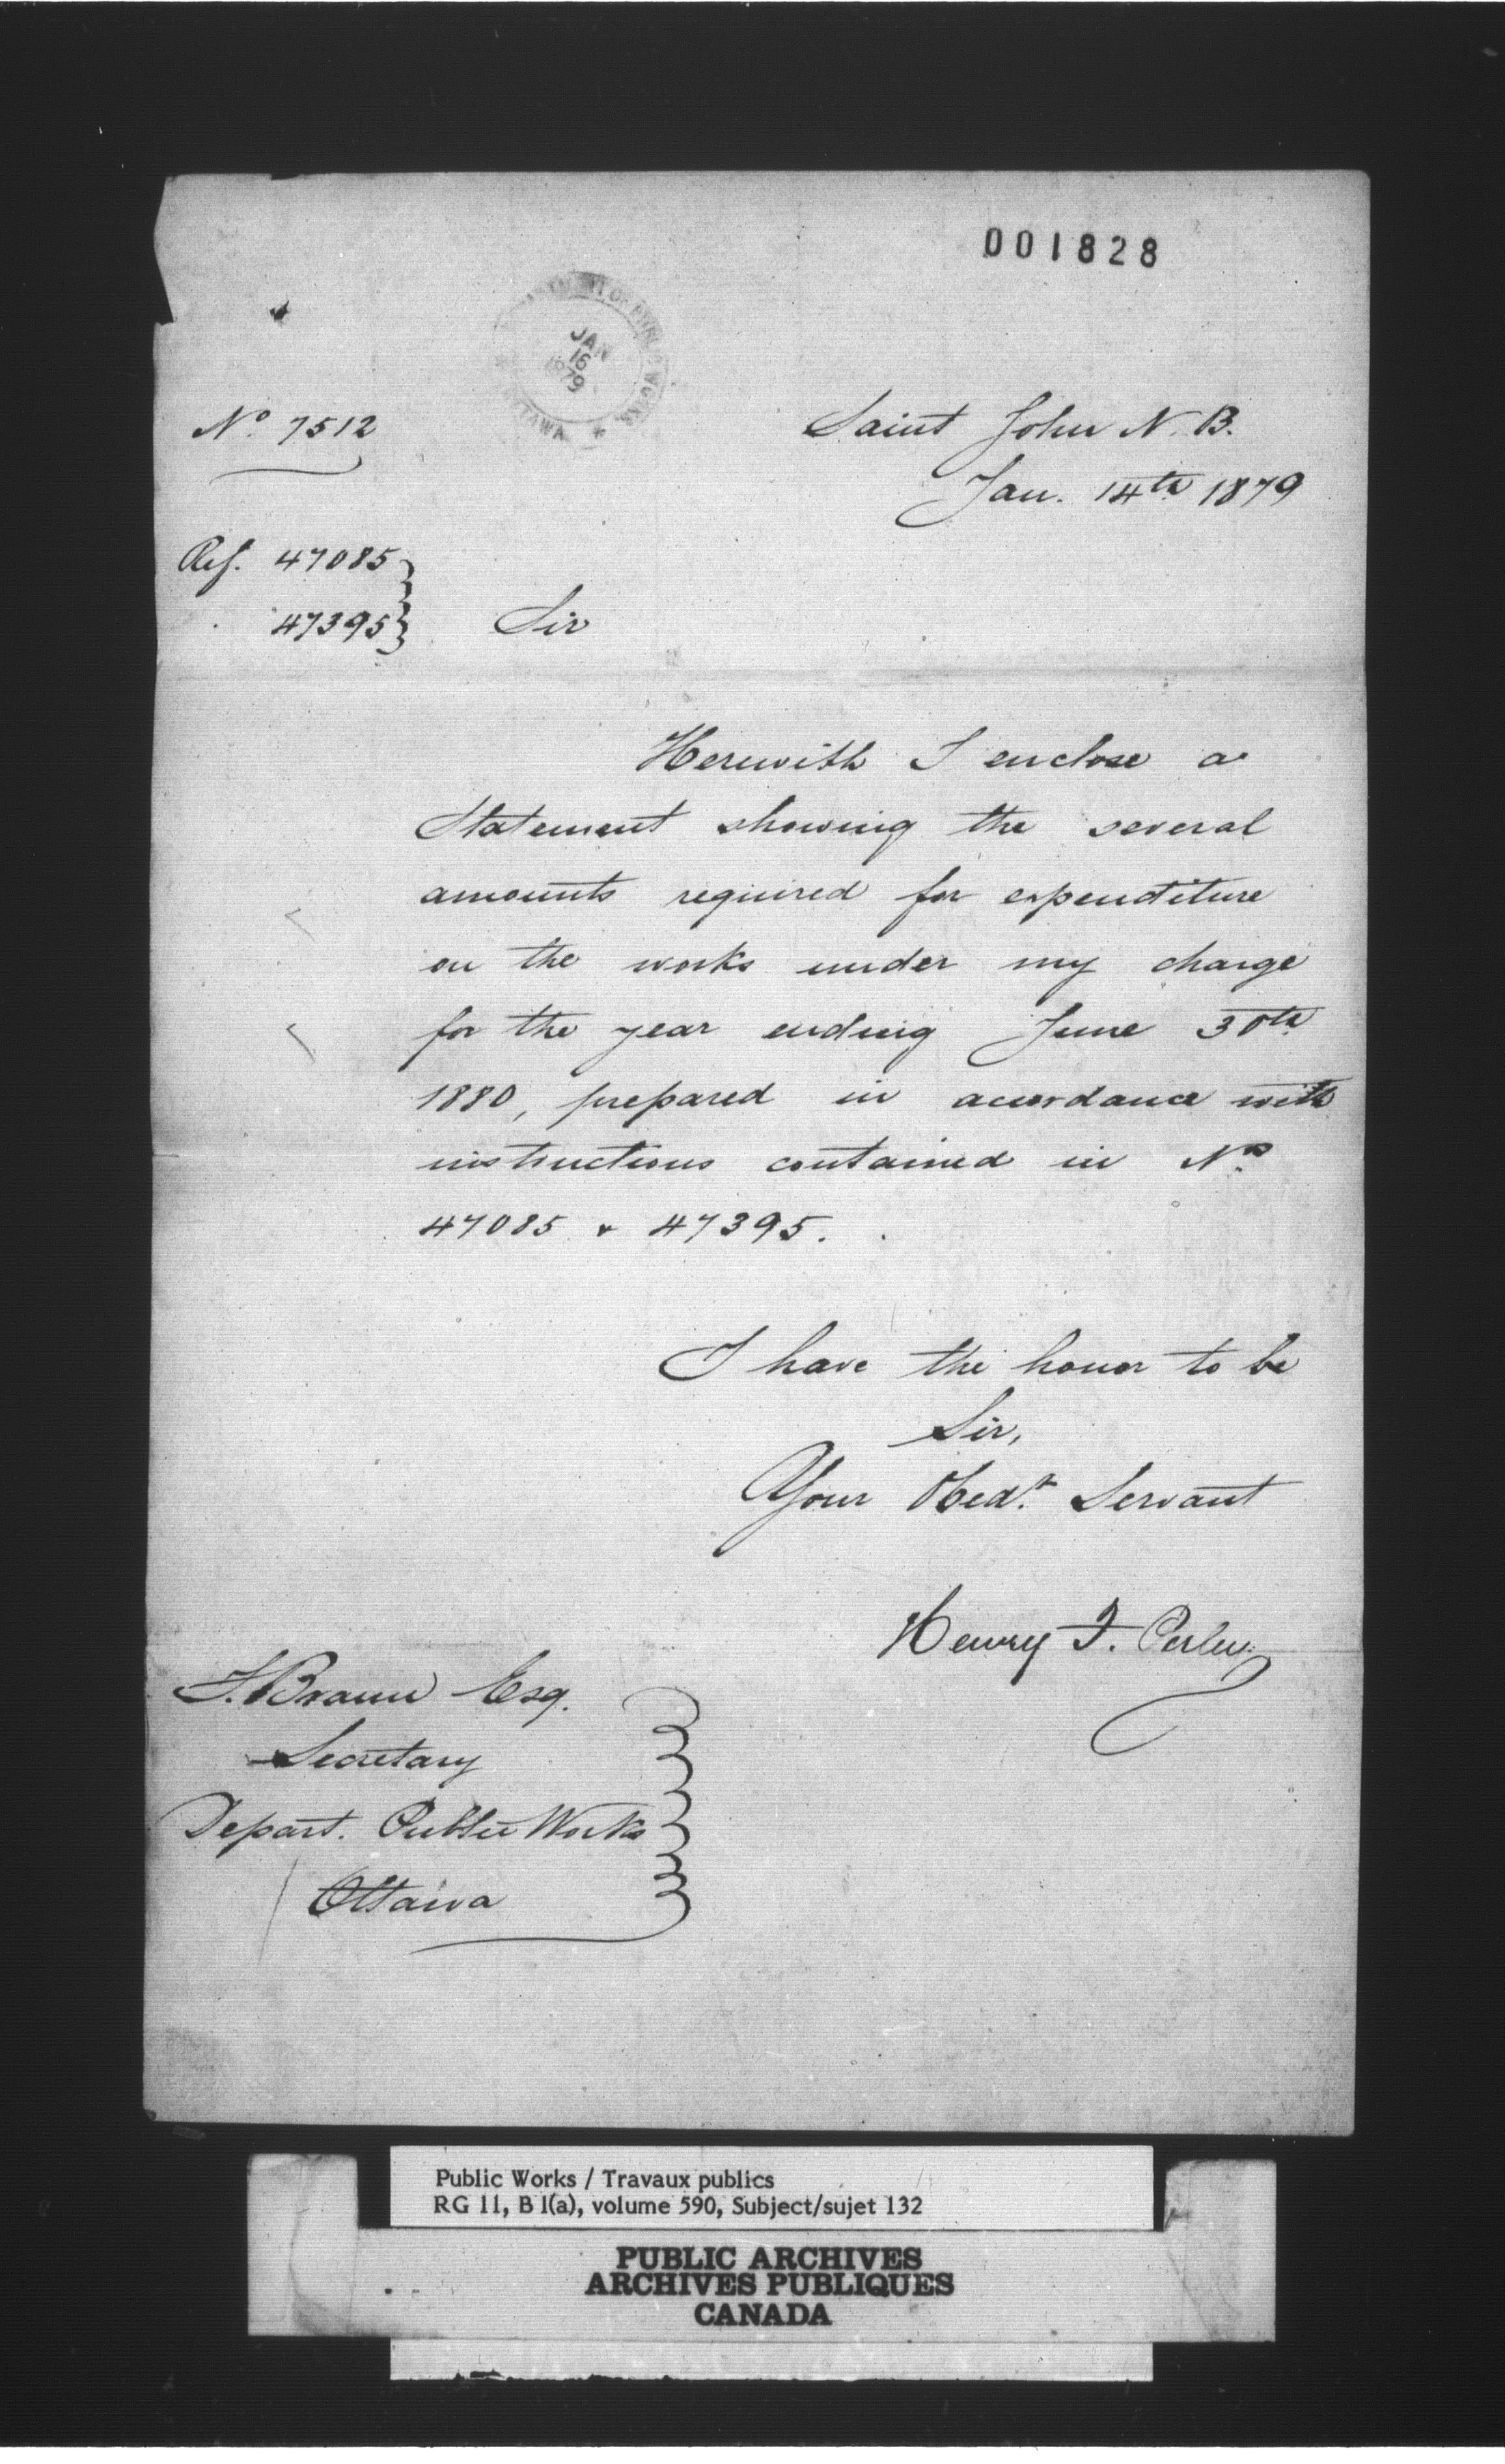 001828
DEPARTMENT OF PUBLIC WORKS
JAN
16
1879
OTTAWA
No. 7512
Saint John N. B.
Jan. 14th 1879
Ref. 47085
47395
Sir
Herewith I enclose a
Statement showing the several
amounts required for expenditure
on the works under my charge
for the year ending June 30th
1880, prepared in accordance with
instructions contained in Nos
47085 & 47395.
I have the honor to be
Sir,
Your Obedt. Servant
Henry F. Perley
F. Braun Esq.
Secretary
Depart. Public Works
Ottawa
Public Works / Travaux publics
RG 11, B 1(a), volume 590, Subject/sujet 132
PUBLIC ARCHIVES
ARCHIVES PUBLIQUES
CANADA